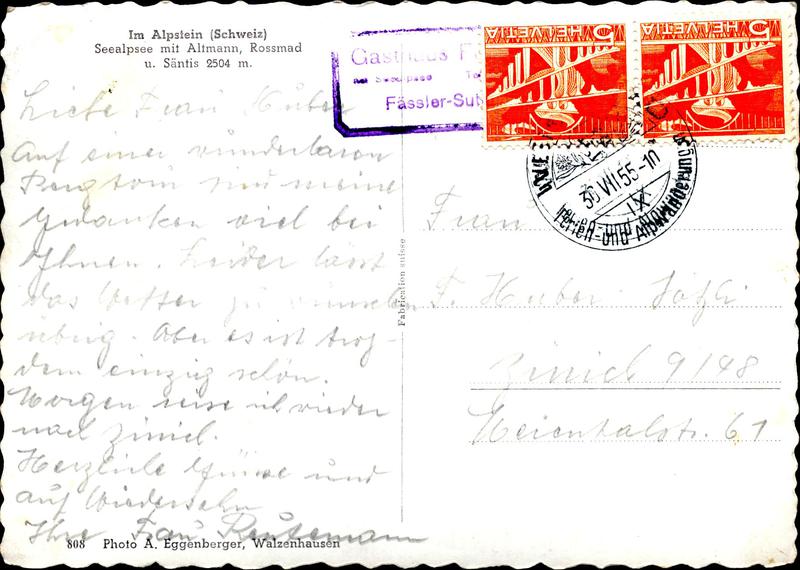 Im Alpstein (Schweiz)
Seealpsee mit Altmann, Rossmad
u. Säntis 2504 m.
Gasthaus
bei Seealpsee
Fässler-Sut
HELVETIA 5
HELVETIA 5
30.VII.55-10
IX
Ferien- und
Liebe Frau Huber
Auf einer wunderbaren
Bergtour sind meine
Gedanken viel bei
Ihnen. Leider lässt
das Wetter zu wünschen
übrig. Aber es ist trotz-
dem einzig schön.
Morgen reise ich wieder
nach Zürich.
Herzliche Grüsse und
auf Wiedersehn
Ihre Frau Reutemann
Fabrication suisse
Frau
F. Huber
Zürich 9/48
Meientalstr. 61
808 Photo A. Eggenberger, Walzenhausen